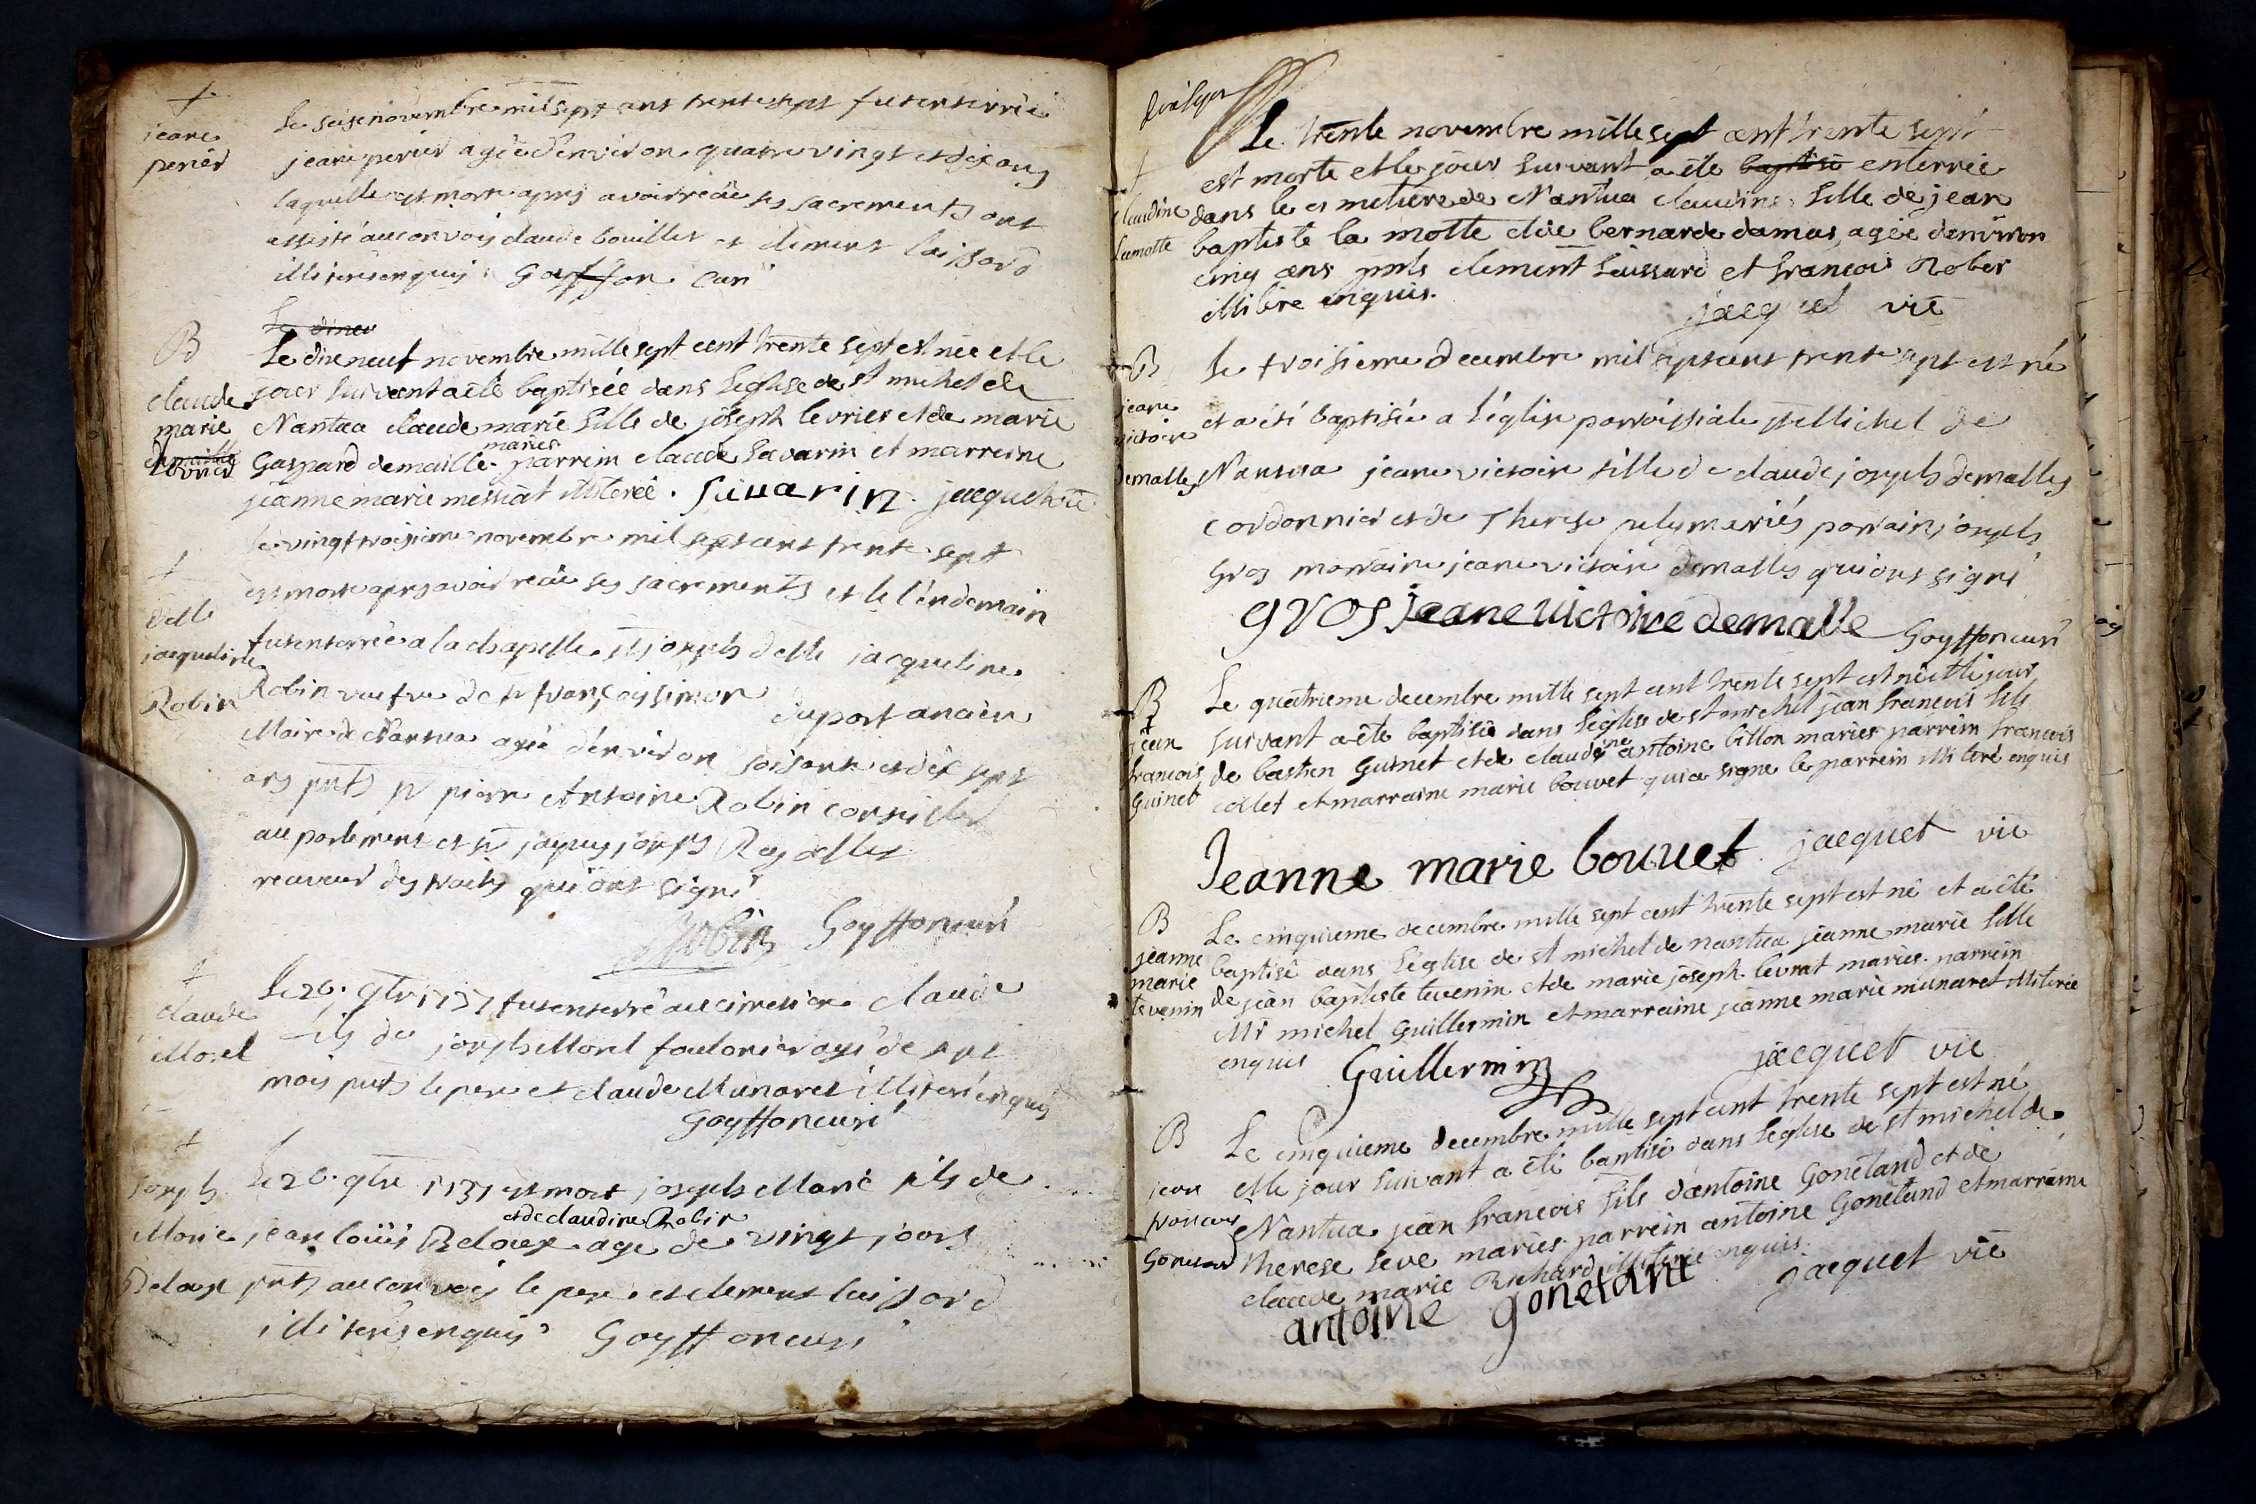 +
jeane
perier
Le seise novembre mil sept cens trente sept fut enterrée
jeane perier agée d'environ quatre vingt et dix ans
laquelle est morte apres avoir recu ses sacrements ont
assisté au convois claude bouillet et clement laissard
illiterés enquis Goyffon curé
Le dinov
B
claude
marie
levrier
Le dix neuf novembre mille sept cent trente sept est née et le
jour suivant a été baptisée dans l'eglise de st michel de
Nantua claude marie fille de joseph levrier et de marie
Gaspard demaille mariés parrein claude Savarin et marreine
jeanne marie messiat illiterée. Savarin jacquet vic
+
delle
jacqueline
Robin
le vingt troisieme novembre mil sept cens trente sept
est morte apres avoir recu ses sacrements et le l'endemain
fut enterrée a la chapelle st joseph delle jacqueline
Robin veufve de sr françois simon duport ancien
Maire de Nantua agée d'environ soisante et dix sept
ans pnts sr pierre Antoine Robin conseiller
au parlement et sr jaques joseph
receveur des traites qui ont signé
Robin Goyffon curé
+
claude
Morel
Le 26. 9bre 1737 fut enterré au cimetiere claude
fils de joseph Morel agé de sept
mois pnts le pere et claude Munaret illiteré enquis
Goyffon curé
+
joseph
Marie
Deloux
Le 26. 9bre 1737 est mort joseph Marie fils de
jean loüis Deloux et de claudine Robin agé de vingt jours
pnts au convois le pere et clement laissard
illiterés enquis Goyffon curé
+
claudine
Lamotte
Le trente novembre mille sept cent trente sept
est morte et le jour suivant a été baptisé enterrée
dans le cimetiere de Nantua claudine fille de jean
baptiste la motte et de bernarde damas, agée d'environ
cinq ans pnts clement laissard et francois Rober
illitere enquis.
jacquet vic
B
jeane
victoire
Demalles
Le troisieme decembre mil sept cens trente sept est née
et a été baptisée a l'église parroissiale st Michel de
Nantua jeane victoire fille de claude joseph demalles
cordonnier et de Therese mariés parrain joseph
Gros marraine jeane victoire demalles qui ont signé
gros jeane victoire demalle Goyffon curé
B
jean
francois
Guinet
Le quatrieme decembre mille sept cent trente sept est né et le jour
suivant a été baptisé dans l'église de st michel jean francois fils
de bastien Guinet et de claudine antoine billon mariés parrein francois
collet et marraine marie bouvet qui a signé le parrein illiteré enquis
Jeanne marie bouuet jacquet vic
B
jeanne
marie
tevenin
Le cinquieme decembre mille sept cent trente sept est né et a été
baptisé dans l'église de st michel de nantua jeanne marie fille
de jean baptiste tevenin et de marie joseph levrat mariés parrein
Mr michel Guillermin et marraine jeanne marie munaret illiterée
enquis Guillermin jacquet vic
B
jean
francois
Gonetand
Le cinquieme decembre mille sept cent trente sept est né
et le jour suivant a été baptisé dans l'eglise de st michel de
Nantua jean francois fils d'antoine Gonetand et de
Therese seve mariés parrein antoine Gonetand et marraine
claude marie Richard illiterée enquis.
antoine gonetant jacquet vic